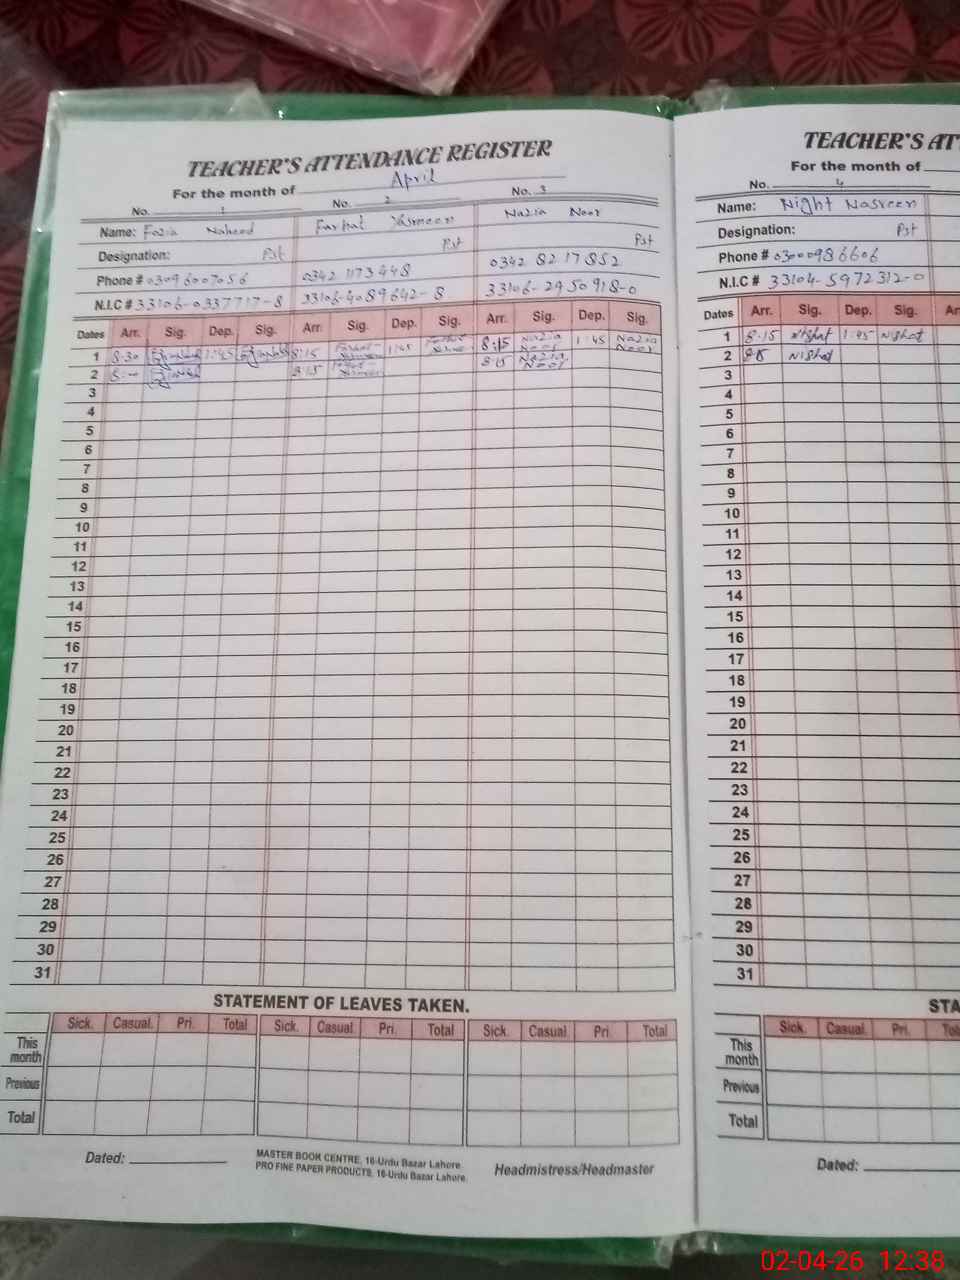 TEACHER'S ATTENDANCE REGISTER
For the month of April
No. 1 No. 2 No. 3
Name: Fozia Naheed Farhat Yasmeen Nazia Noor
Designation: Pst Pst Pst
Phone # 03096007056 0342 1173448 0342 8217852
N.I.C # 33106-0337717-8 33106-4089642-8 33106-2950918-0
Dates Arr. Sig. Dep. Sig. Arr. Sig. Dep. Sig. Arr. Sig. Dep. Sig.
1 8:30 1:45 8:15 Farhat Yasmeen 1:45 8:15 Nazia Noor 1:45 Nazia Noor
2 8:00 8:15 8:15 Nazia Noor
3
4
5
6
7
8
9
10
11
12
13
14
15
16
17
18
19
20
21
22
23
24
25
26
27
28
29
30
31
STATEMENT OF LEAVES TAKEN.
Sick. Casual. Pri. Total Sick. Casual Pri. Total Sick. Casual Pri. Total
This month
Previous
Total
Dated:
MASTER BOOK CENTRE, 16-Urdu Bazar Lahore.
PRO FINE PAPER PRODUCTS, 16-Urdu Bazar Lahore.
Headmistress/Headmaster
TEACHER'S AT
For the month of
No. 4
Name: Night Nasreen
Designation: Pst
Phone # 03000986606
N.I.C # 33104-5972312-0
Dates Arr. Sig. Dep. Sig. Ar
1 8:15 Nighat 1:45 Nighat
2 Nighat
3
4
5
6
7
8
9
10
11
12
13
14
15
16
17
18
19
20
21
22
23
24
25
26
27
28
29
30
31
STA
Sick. Casual Pri. To
This month
Previous
Total
Dated:
02-04-26 12:38